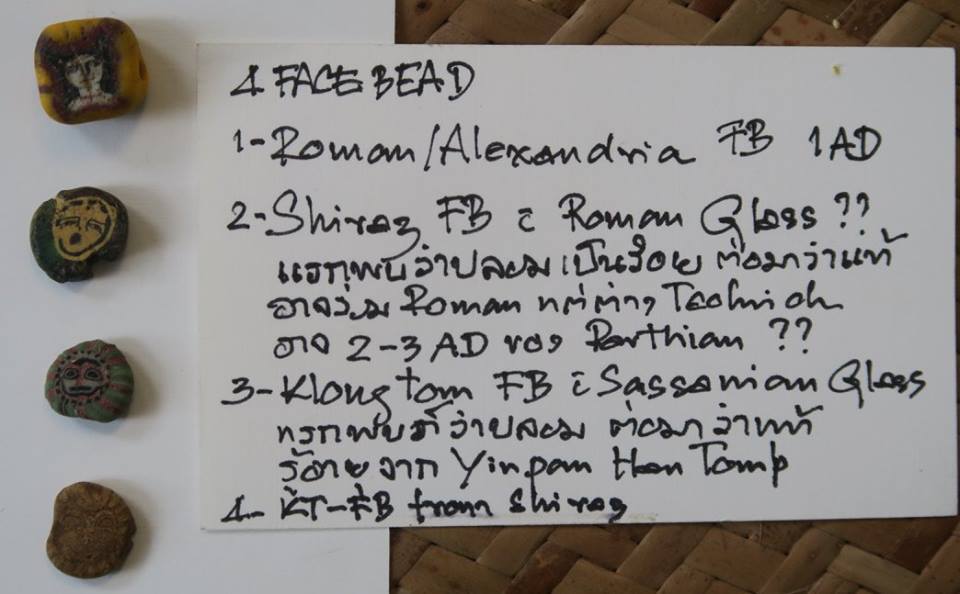 4 FACE BEAD
1-Roman/Alexandria FB 1AD
2-Shiraz FB c Roman Glass ??
แรกพบว่าปลอม เป็นร้อย ต่อมาว่าแท้
อาจร่วม Roman แต่ต่าง Technich
อาจ 2-3 AD ของ Parthian ??
3-Klongtom FB c Sassanian Glass
แรกพบก็ว่าปลอม ต่อมาว่าแท้
จาก Yinpan Han Tomp
4- KT-FB from Shiraz